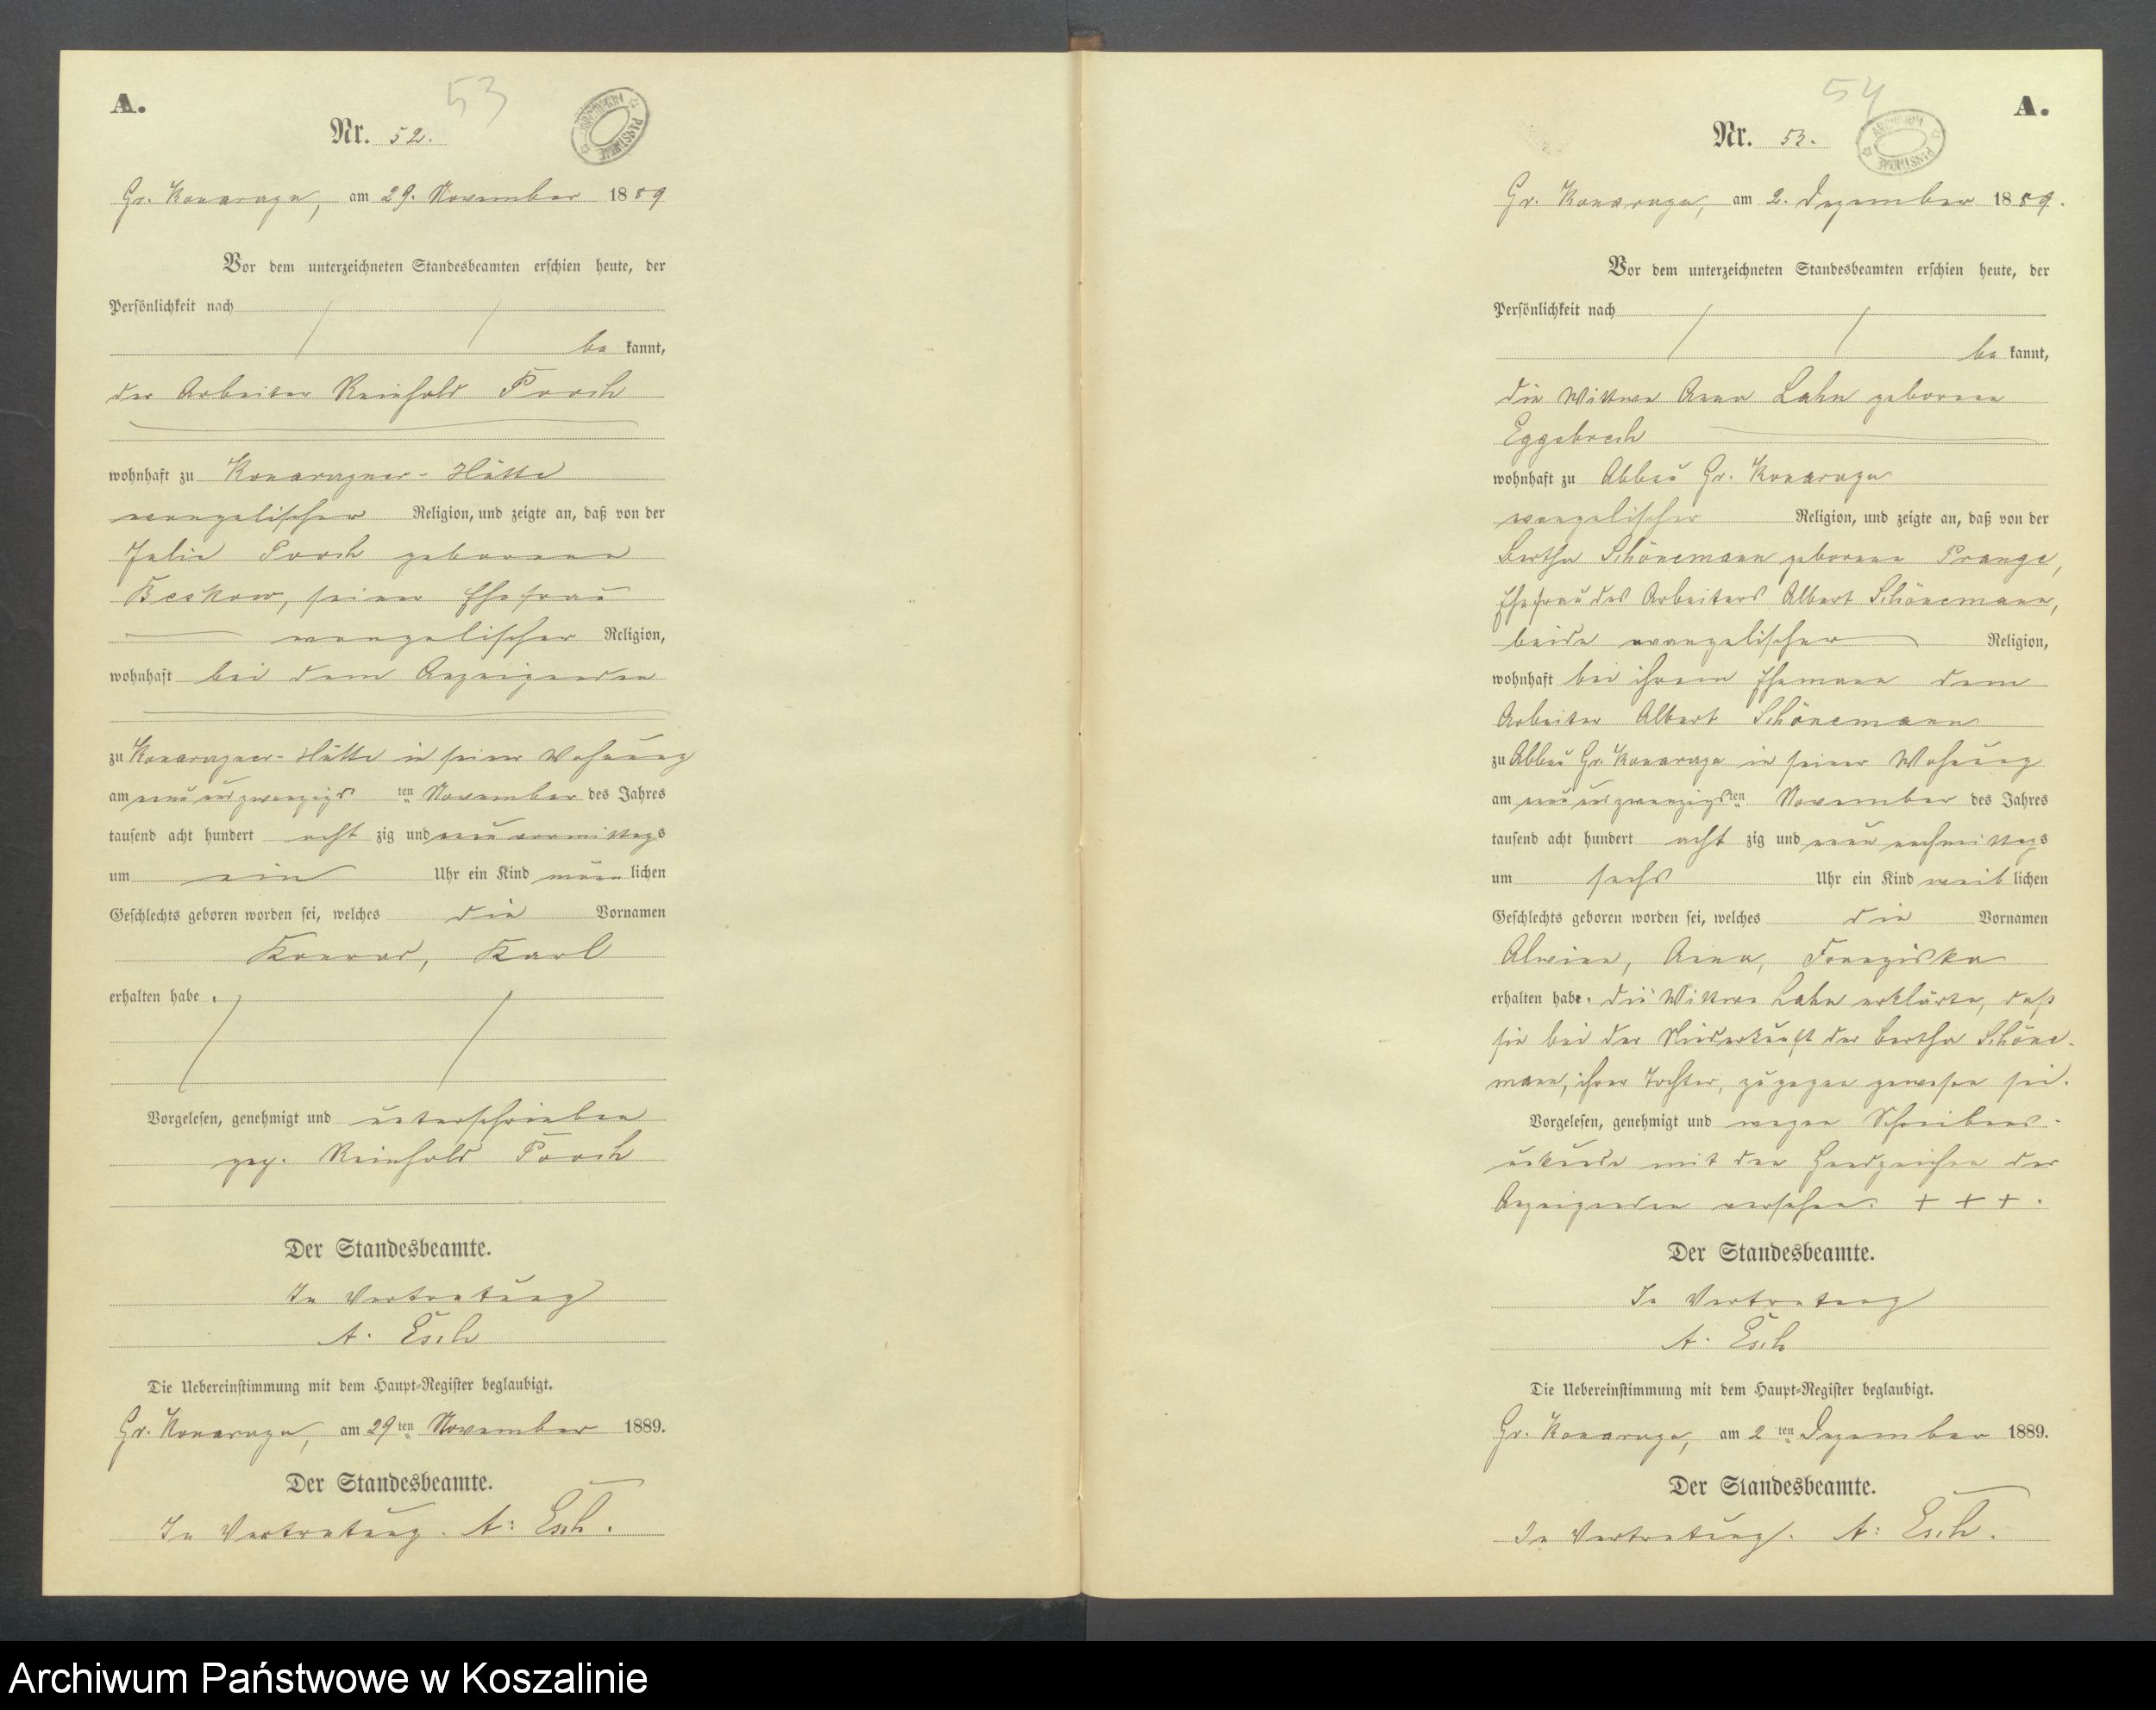 A.
53
Nr. 52.
ARCHIWUM PAŃSTWOWE
Gr. Konarzyn, am 29. November 1889
Vor dem unterzeichneten Standesbeamten erschien heute, der
Persönlichkeit nach
be kannt,
der Arbeiter Reinhold Porsch
wohnhaft zu Konarzyner-Hütte
evangelischer Religion, und zeigte an, daß von der
Julie Porsch geborenen
Beskow, seiner Ehefrau
evangelischer Religion,
wohnhaft bei dem Anzeigenden
zu Konarzyner-Hütte in seiner Wohnung
am neunundzwanzigs ten November des Jahres
tausend acht hundert acht zig und neun vormittags
um ein Uhr ein Kind männ lichen
Geschlechts geboren worden sei, welches die Vornamen
Konrad, Karl
erhalten habe.
Vorgelesen, genehmigt und unterschrieben
gez. Reinhold Porsch
Der Standesbeamte.
In Vertretung
A. Esch
Die Uebereinstimmung mit dem Haupt-Register beglaubigt.
Gr. Konarzyn, am 29 ten November 1889.
Der Standesbeamte.
In Vertretung. A: Esch.
54
A.
Nr. 53.
ARCHIWUM PAŃSTWOWE
Gr. Konarzyn, am 2. Dezember 1889.
Vor dem unterzeichneten Standesbeamten erschien heute, der
Persönlichkeit nach
be kannt,
die Wittwe Anna Lahn geborene
Eggebrech
wohnhaft zu Abbau Gr. Konarzyn
evangelischer Religion, und zeigte an, daß von der
Bertha Schönemann geborene Prange,
Ehefrau des Arbeiters Albert Schönemann,
beide evangelischer Religion,
wohnhaft bei ihrem Ehemann dem
Arbeiter Albert Schönemann
zu Abbau Gr. Konarzyn in seiner Wohnung
am neunundzwanzigsten November des Jahres
tausend acht hundert acht zig und neun nachmittags
um sechs Uhr ein Kind weib lichen
Geschlechts geboren worden sei, welches die Vornamen
Alwine, Anna, Franziska
erhalten habe. Die Wittwe Lahn erklärte, daß
sie bei der Niederkunft der Bertha Schöne-
mann, ihrer Tochter, zugegen gewesen sei.
Vorgelesen, genehmigt und wegen Schreibens-
unkunde mit den Handzeichen der
Anzeigenden versehen. + + + .
Der Standesbeamte.
In Vertretung
A. Esch
Die Uebereinstimmung mit dem Haupt-Register beglaubigt.
Gr. Konarzyn, am 2 ten Dezember 1889.
Der Standesbeamte.
In Vertretung. A: Esch.
Archiwum Państwowe w Koszalinie